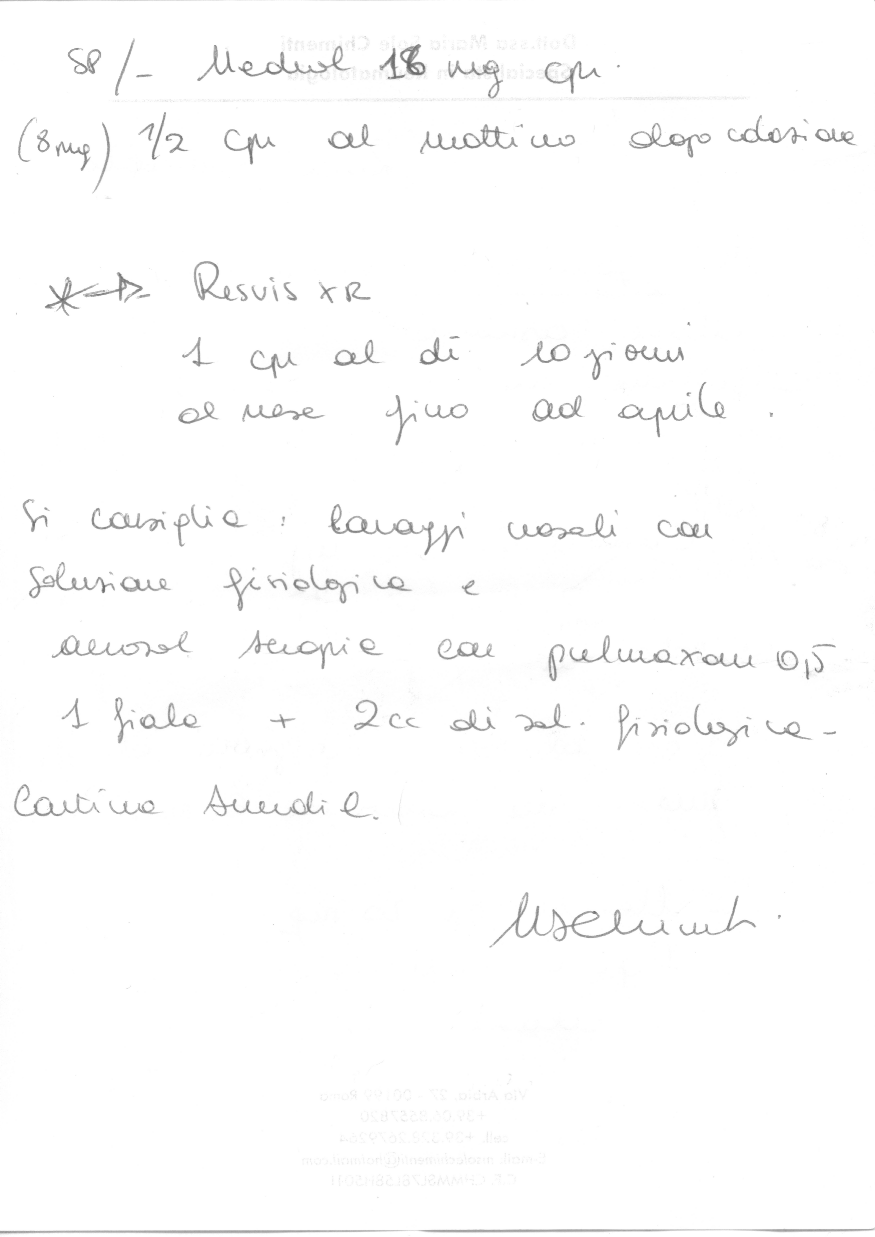 SP /- Medrol 16 mg cpr.
(8mg) 1/2 cpr al mattino dopo colazione
Resvis XR
1 cpr al dì 10 giorni
al mese fino ad aprile.
Si consiglia: lavaggi nasali con
soluzione fisiologica e
aerosol terapia con pulmaxan 0,5
1 fiala + 2cc di sol. fisiologica-
Continua